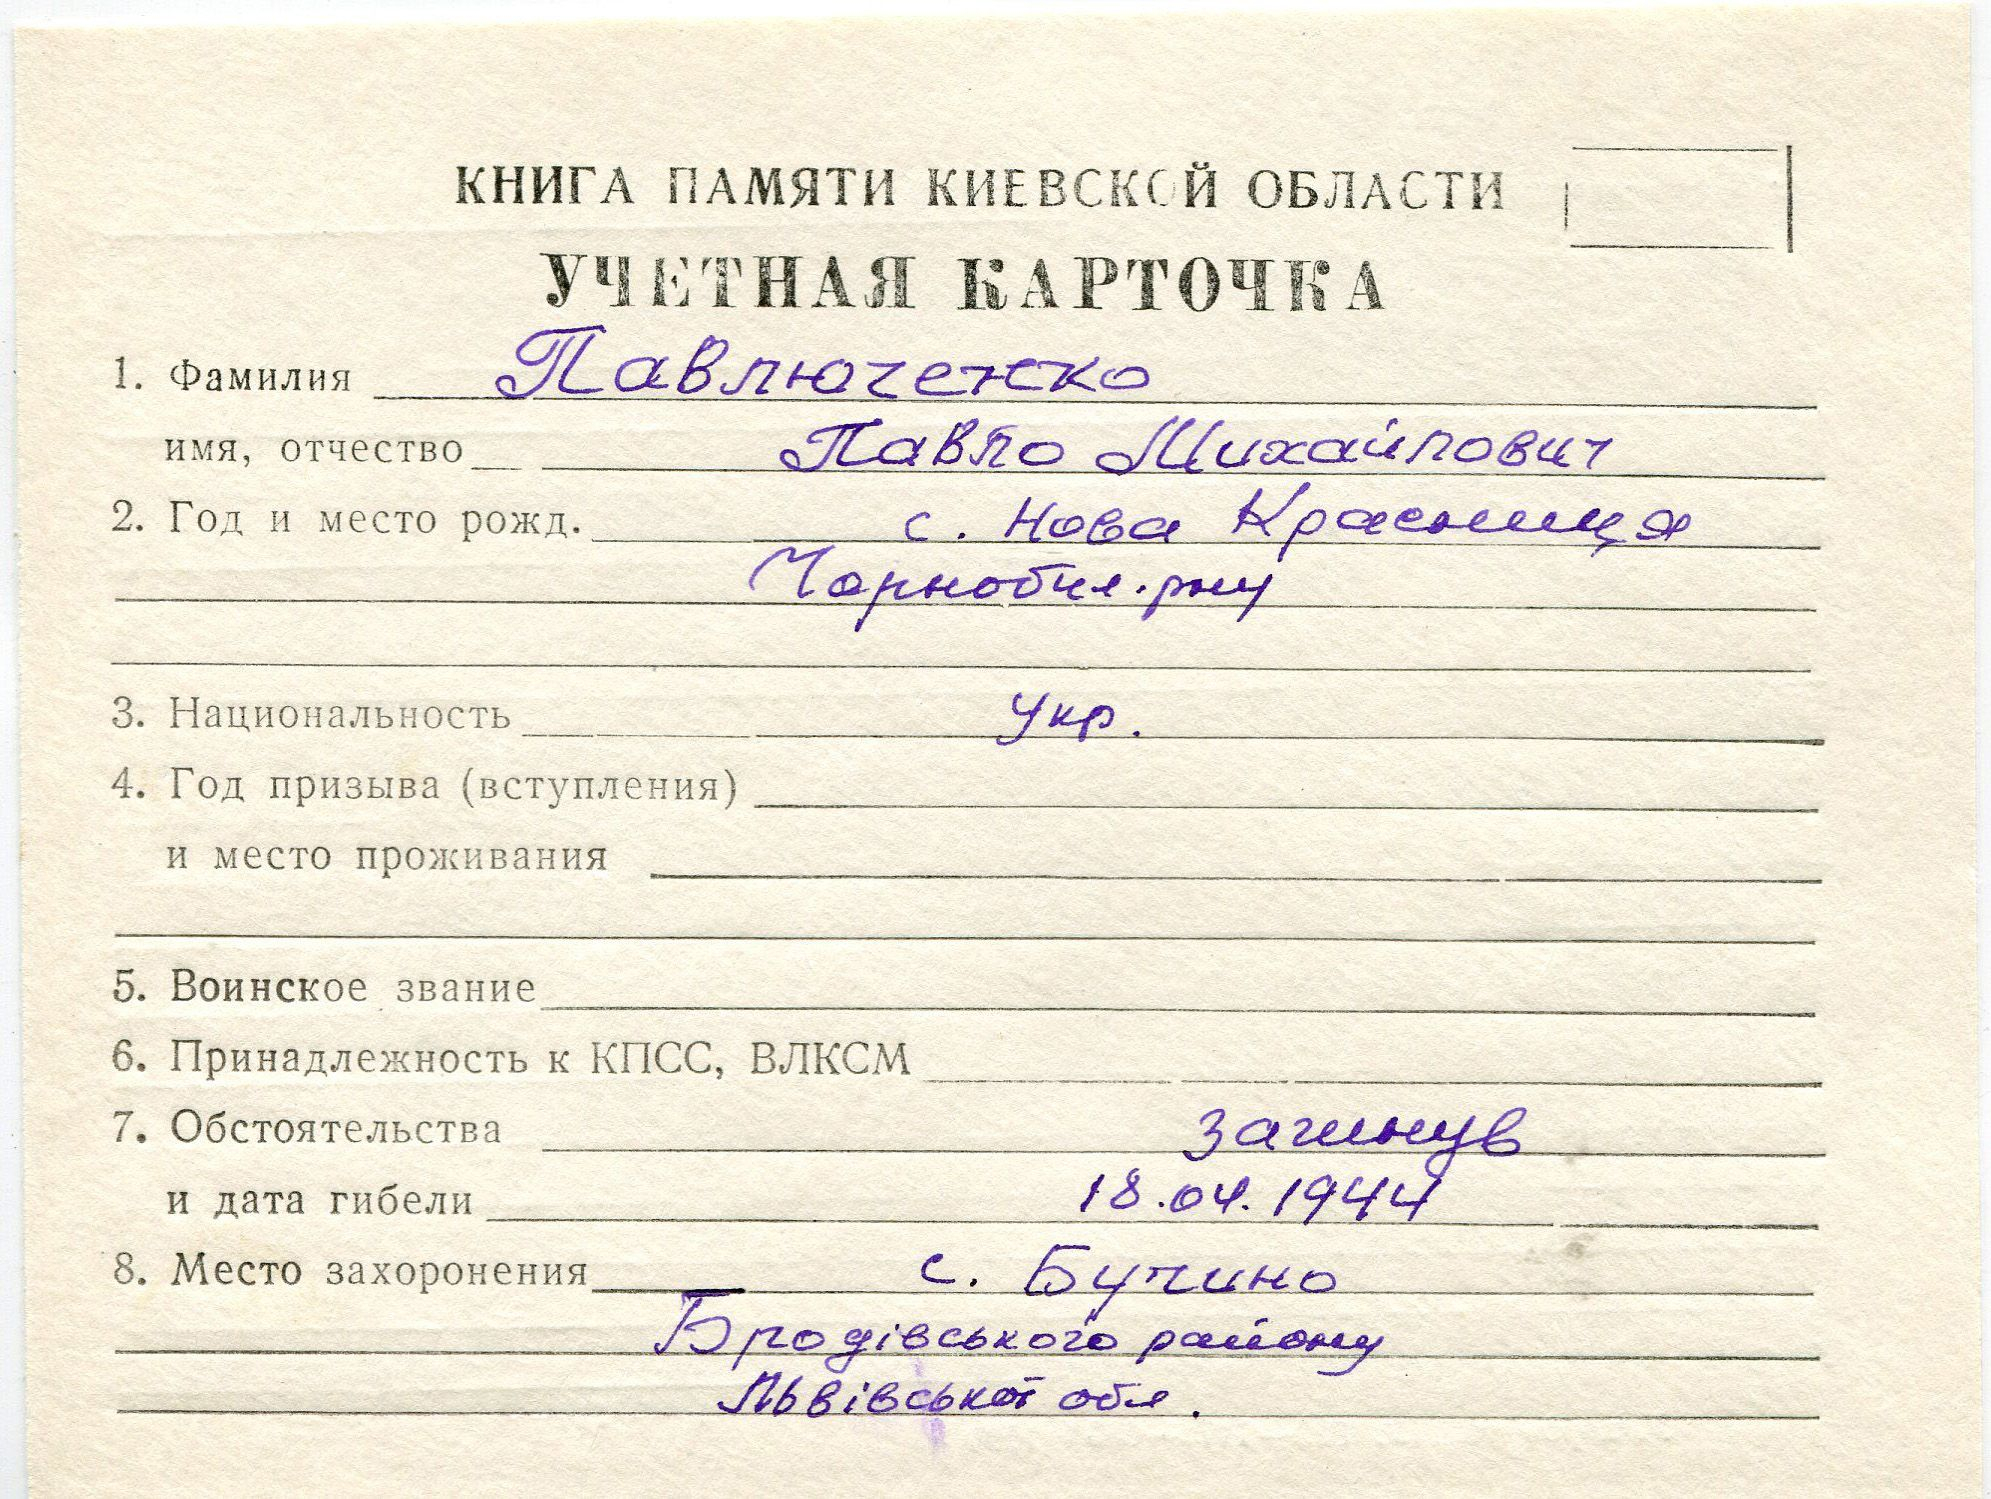 КНИГА ПАМЯТИ КИЕВСКОЙ ОБЛАСТИ
УЧЕТНАЯ КАРТОЧКА
1. Фамилия Павлюченко
имя, отчество Павло Михайлович
2. Год и место рожд. с. Нова Красниця
Чорнобил. р-ну
3. Национальность Укр.
4. Год призыва (вступления)
и место проживания
5. Воинское звание
6. Принадлежность к КПСС, ВЛКСМ
7. Обстоятельства загинув
и дата гибели 18.04.1944
8. Место захоронения с. Бучино
Бродівського району
Львівської обл.